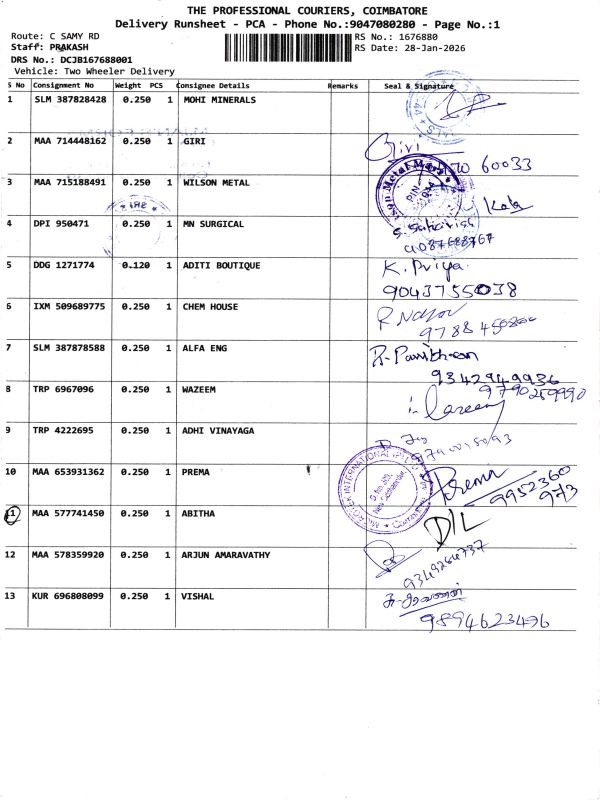 THE PROFESSIONAL COURIERS, COIMBATORE
Delivery Runsheet - PCA - Phone No.:9047080280 - Page No.:1
Route: C SAMY RD
RS No.: 1676880
Staff: PRAKASH
RS Date: 28-Jan-2026
DRS No.: DCJB167688001
Vehicle: Two Wheeler Delivery
S No Consignment No Weight PCS Consignee Details Remarks Seal & Signature
1 SLM 387828428 0.250 1 MOHI MINERALS
2 MAA 714448162 0.250 1 GIRI Giri
60033
3 MAA 715188491 0.250 1 WILSON METAL
4 DPI 950471 0.250 1 MN SURGICAL
9087688767
5 DDG 1271774 0.120 1 ADITI BOUTIQUE K. Priya
9043755038
6 IXM 509689775 0.250 1 CHEM HOUSE
7 SLM 387878588 0.250 1 ALFA ENG
9342949936
8 TRP 6967096 0.250 1 WAZEEM 9790259990
9 TRP 4222695 0.250 1 ADHI VINAYAGA
10 MAA 653931362 0.250 1 PREMA Prema
9952360
973
11 MAA 577741450 0.250 1 ABITHA D/L
12 MAA 578359920 0.250 1 ARJUN AMARAVATHY
9349264737
13 KUR 696808099 0.250 1 VISHAL
9894623496